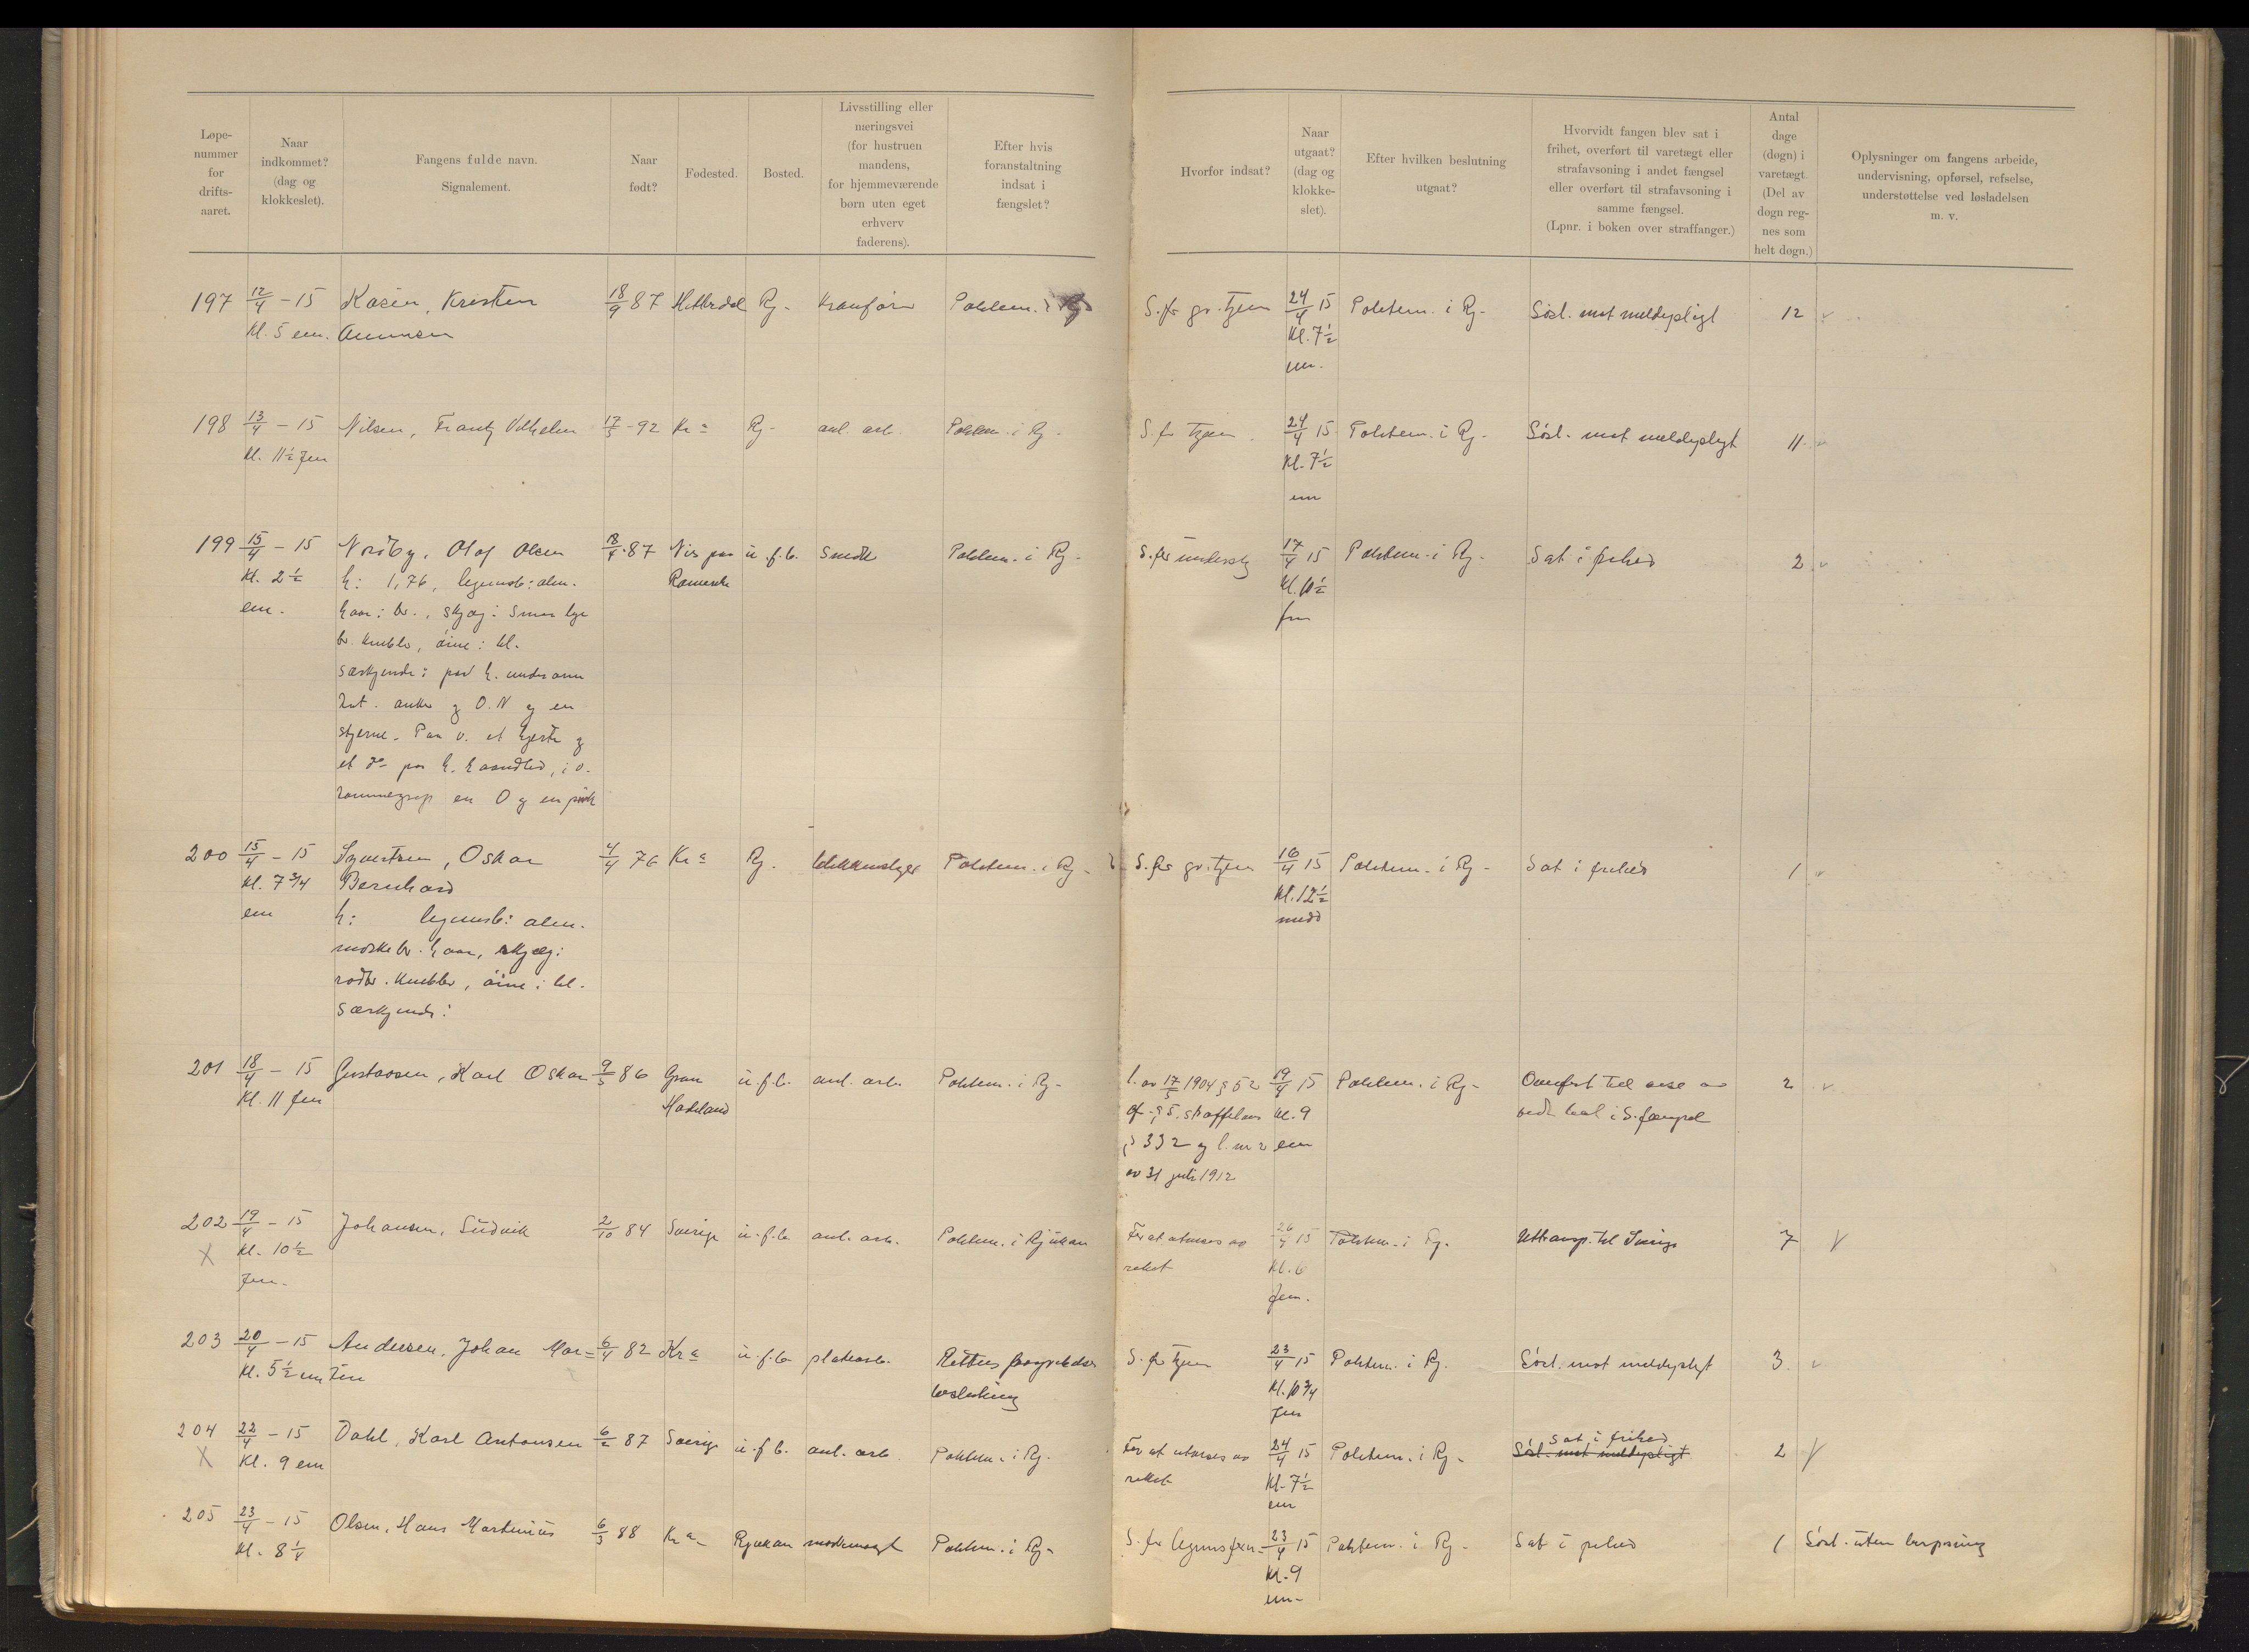 Løpe-
nummer
for
drifts-
aaret.
Naar
indkommet?
(dag og
klokkeslet).
Fangens fulde navn.
Signalement.
Naar
født?
Fødested.
Bosted.
Livsstilling eller
næringsvei
(for hustruen
mandens,
for hjemmeværende
børn uten eget
erhverv
faderens).
Efter hvis
foranstaltning
indsat i
fængslet?
Hvorfor indsat?
Naar
utgaat?
(dag og
klokke-
slet).
Efter hvilken beslutning
utgaat?
Hvorvidt fangen blev sat i
frihet, overført til varetægt eller
strafavsoning i andet fængsel
eller overført til strafavsoning i
samme fængsel.
(Lpnr. i boken over straffanger.)
Antal
dage
(døgn) i
varetægt.
(Del av
døgn reg-
nes som
helt døgn.)
Oplysninger om fangens arbeide,
undervisning, opførsel, refselse,
understøttelse ved løsladelsen
m. v.
197 12/4 - 15 Kasin, Kristen 18/9 87 Hitterdal Rj- kranfører Politim. i Rj S. for gr. tjen 24/4 15 Politim. i Rj- Løsl. mot meldepligt 12
Kl. 5 em. Aumnsen Kl. 7½
em.
198 13/4 - 15 Nilsen, Frantz Vilhelm 17/5 - 92 Kra Rj- anl. arb. Politim. i Rj- S. for tyveri 24/4 15 Politim. i Rj- Løsl. mot meldepligt 11
Kl. 11½ fm Kl. 7½
em
199 15/4 - 15 Nordby, Olaf Olsen 18/4 87 Nis paa u. f. b. Smed Politim. i Rj- S. for underslg 17/4 15 Politim. i Rj- Sat i frihed 2
Kl. 2½ h: 1,76, legemsb: alm. Romerike Kl. 10½
em. haar: br., skjæg: Smaa lyse fm
br. knebler, øine: bl.
særkjende: paa h. underarm
tat. anker og O. N og en
stjerne. Paa v. et hjerte og
et do paa h. haandled, i v.
tommegrep en O og en prik
200 15/4 - 15 Oskar 4/4 76 Kra Rj. Politim. i Rj- S. for gr. tjen 16/4 15 Politim. i Rj- Sat i frihed 1
Kl. 7¾ Bernhard Kl. 12½
em h: legemsb: alm. midd
mørkebr. haar, skjæg:
rødbr. knebler, øine: bl.
Særkjende:
201 18/4 - 15 Gustavsen, Karl Oskar 9/5 86 Gran u. f. b. anl. arb. Politim. i Rj- l. av 17/5 1904 § 52 19/4 15 Politim. i Rj- Overført til
Kl. 11 fm Hadeland cf. § 5, straffelov Kl. 9 i S. fængsel 2
§ 332 og l. nr 2 em
av 31 juli 1912
202 19/4 - 15 Johansen, Ludvik 2/10 84 Sverige u. f. b. anl. arb. Politim. i Rjukan For at utvises av 26/4 15 Politim. i Rj. Uttransp. til Sverige 7
X Kl. 10½ riket Kl. 6
fm. fm.
203 20/4 - 15 Andersen, Johan Mar= 6/4 82 Kra u. f. b. platearb. Rettens fængslings S. for tyveri 23/4 15 Politim. i Rj. Løsl. mot meldepligt 3
Kl. 5½ em tin beslutning Kl. 10¾
fm
204 22/4 - 15 Dahl, Karl Antonsen 6/2 87 Sverige u. f. b. anl. arb. Politim. i Rj. For at utvises av 24/4 15 Politim. i Rj- Sat i frihed 2
X Kl. 9 em riket Kl. 7½ Løsl. mot meldepligt
em
205 23/4 - 15 Olsen, Hans Martinius 6/3 88 Kra Rjukan Politim. i Rj- S. for legemsfor= 23/4 15 Politim. i Rj- Sat i frihed 1 Løsl. uten bespisning
Kl. 8¼ Kl. 9
em-